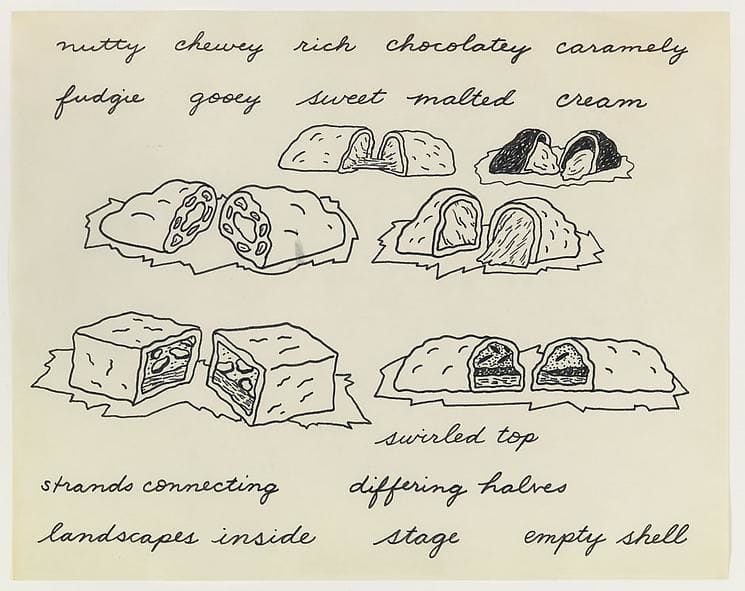 nutty chewey rich chocolatey caramely
fudgie gooey sweet malted cream
swirled top
strands connecting differing halves
landscapes inside stage empty shell